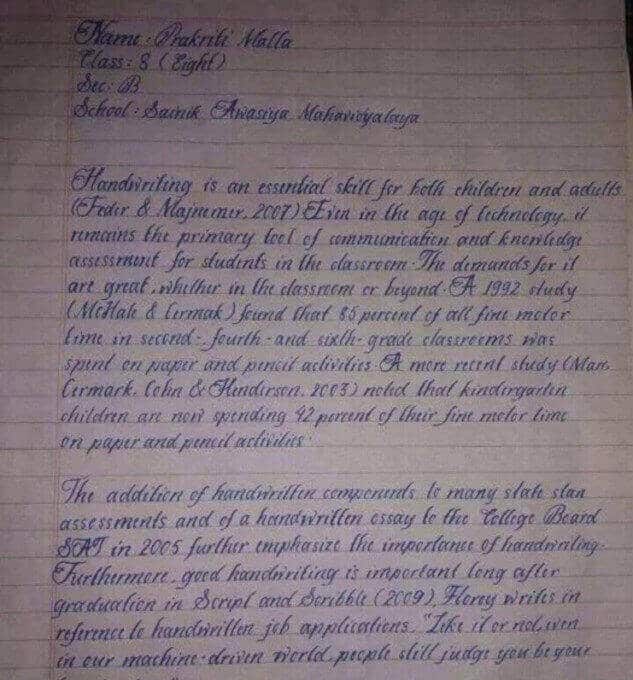 Name : Prakriti Malla
Class : 8 ( Eight )
Sec : B
School : Sainik Awasiya Mahavidyalaya
Handwriting is an essential skill for both children and adults
(Feder & Majnemer, 2007) Even in the age of technology, it
remains the primary tool of communication and knowledge
assessment for students in the classroom. The demands for it
are great, whether in the classroom or beyond. A 1992 study
(McHale & Cermak) found that 85 percent of all fine motor
time in second-, fourth-and sixth-grade classrooms was
spent on paper and pencil activities. A more recent study (Marr,
Cermark, Cohn & Henderson, 2003) noted that kindergarten
children are now spending 42 percent of their fine motor time
on paper and pencil activities.
The addition of handwritten components to many state stan
assessments and of a handwritten essay to the College Board
SAT in 2005 further emphasize the importance of handwriting.
Furthermore, good handwriting is important long after
graduation in Script and Scribble (2009), Florey writes in
reference to handwritten job applications, "Like it or not, even
in our machine-driven world, people still judge you be your